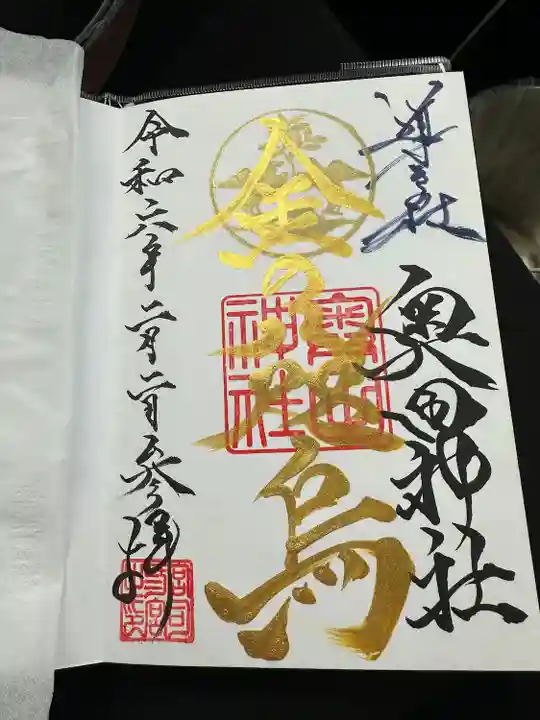 奥田神社
金の八咫烏
奥田
神社
令和六年二月二日参拝